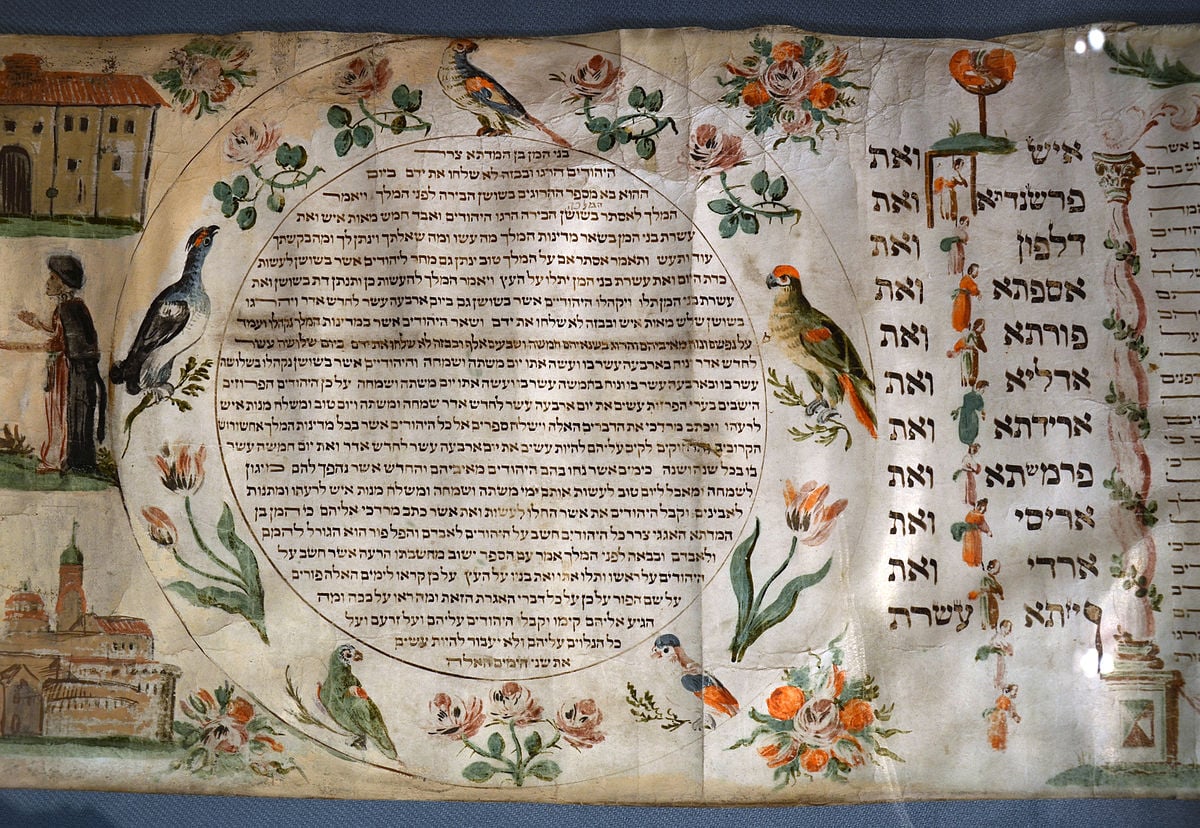 איש ואת
פרשנדתא ואת
דלפון ואת
אספתא ואת
פורתא ואת
אדליא ואת
ארידתא ואת
פרמשתא ואת
אריסי ואת
ארדי ואת
ויזתא עשרת
בני המן בן המדתא צרר
היהודים הרגו ובבזה לא שלחו את ידם ביום
ההוא בא מספר ההרוגים בשושן הבירה לפני המלך ויאמר
המלכה
המלך לאסתר בשושן הבירה הרגו היהודים ואבד חמש מאות איש ואת
עשרת בני המן בשאר מדינות המלך מה עשו ומה שאלתך וינתן לך ומה בקשתך
עוד ותעש ותאמר אסתר אם על המלך טוב ינתן גם מחר ליהודים אשר בשושן לעשות
כדת היום ואת עשרת בני המן יתלו על העץ ויאמר המלך להעשות כן ותנתן דת בשושן ואת
עשרת בני המן תלו ויקהלו היהודים אשר בשושן גם ביום ארבעה עשר לחדש אדר ויהרגו
בשושן שלש מאות איש ובבזה לא שלחו את ידם ושאר היהודים אשר במדינות המלך נקהלו ועמד
על נפשם ונוח מאיביהם והרוג בשנאיהם חמשה ושבעים אלף ובבזה לא שלחו את ידם ביום שלושה עשר
לחדש אדר ונוח בארבעה עשר בו ועשה אתו יום משתה ושמחה והיהודים אשר בשושן נקהלו בשלושה
עשר בו ובארבעה עשר בו ונוח בחמשה עשר בו ועשה אתו יום משתה ושמחה על כן היהודים הפרוזים
הישבים בערי הפרזות עשים את יום ארבעה עשר לחדש אדר שמחה ומשתה ויום טוב ומשלח מנות איש
לרעהו ויכתב מרדכי את הדברים האלה וישלח ספרים אל כל היהודים אשר בכל מדינות המלך אחשורוש
הקרובים והרחוקים לקים עליהם להיות עשים את יום ארבעה עשר לחדש אדר ואת יום חמשה עשר
בו בכל שנה ושנה כימים אשר נחו בהם היהודים מאיביהם והחדש אשר נהפך להם מיגון
לשמחה ומאבל ליום טוב לעשות אותם ימי משתה ושמחה ומשלח מנות איש לרעהו ומתנות
לאבינים וקבל היהודים את אשר החלו לעשות ואת אשר כתב מרדכי אליהם כי המן בן
המדתא האגגי צרר כל היהודים חשב על היהודים לאבדם והפל פור הוא הגורל להמם
ולאבדם ובבאה לפני המלך אמר עם הספר ישוב מחשבתו הרעה אשר חשב על
היהודים על ראשו ותלו אתו ואת בניו על העץ על כן קראו לימים האלה פורים
על שם הפור על כן על כל דברי האגרת הזאת ומה ראו על ככה ומה
הגיע אליהם קימו וקבל היהודים עליהם ועל זרעם ועל
כל הנלוים עליהם ולא יעבור להיות עשים
את שני הימים האלה